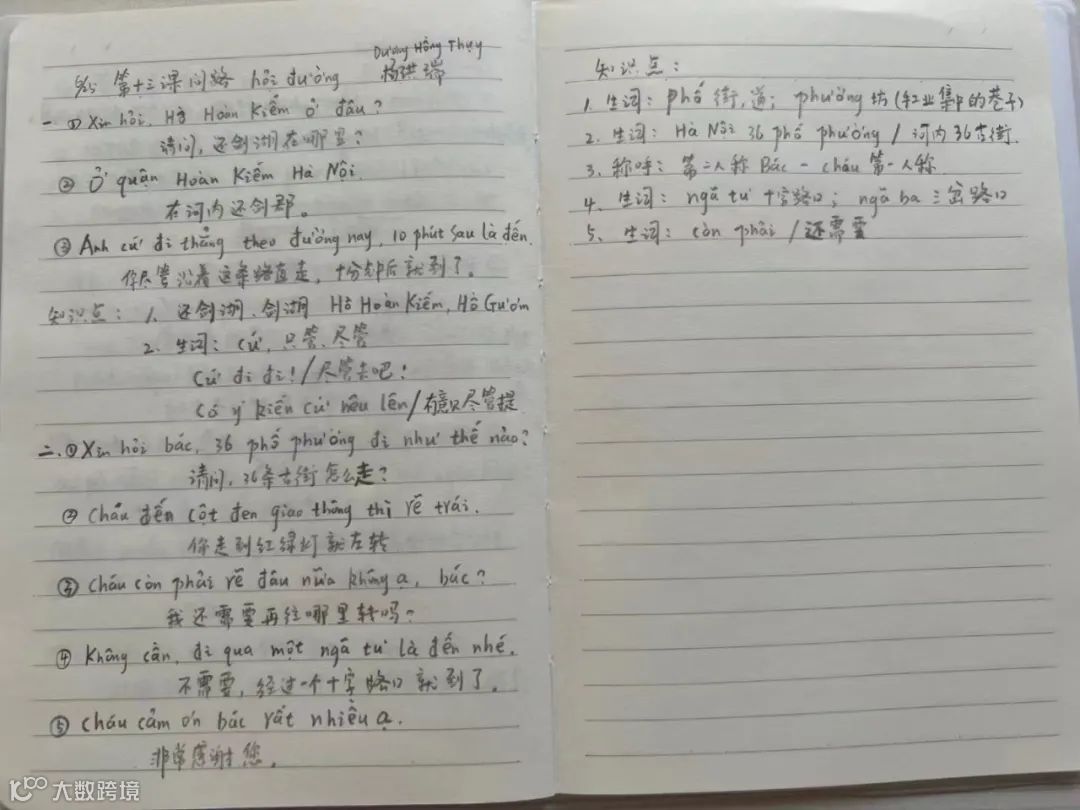 Dương Hồng Thụy
第十三课问路 hỏi đường 杨洪瑞
一 ① Xin hỏi, Hồ Hoàn Kiếm ở đâu?
请问,还剑湖在哪里?
② Ở quận Hoàn Kiếm Hà Nội.
在河内还剑郡。
③ Anh cứ đi thẳng theo đường nay, 10 phút sau là đến.
你尽管沿着这条路直走,十分钟后就到了。
知识点: 1、还剑湖、剑湖 Hồ Hoàn Kiếm, Hồ Gươm
2、生词: cứ, 只管、尽管
Cứ đi đi!/尽管去吧!
Có ý kiến cứ nêu lên/有意见尽管提
二、① Xin hỏi bác, 36 phố phường đi như thế nào?
请问,36条古街怎么走?
② Cháu đến cột đen giao thông thì rẽ trái.
你走到红绿灯就左转
③ Cháu còn phải rẽ đâu nữa không ạ, bác?
我还需要再往哪里转吗?
④ Không cần, đi qua một ngã tư là đến nhé.
不需要,经过一个十字路口就到了。
⑤ Cháu cảm ơn bác rất nhiều ạ.
非常感谢您。
知识点:
1、生词: phố 街,道; phường 坊(手工业集中的巷子)
2、生词: Hà Nội 36 phố phường / 河内36古街.
3、称呼: 第二人称 Bác - cháu 第一人称
4、生词: ngã tư 十字路口; ngã ba 三岔路口
5、生词: còn phải /还需要
大数跨境